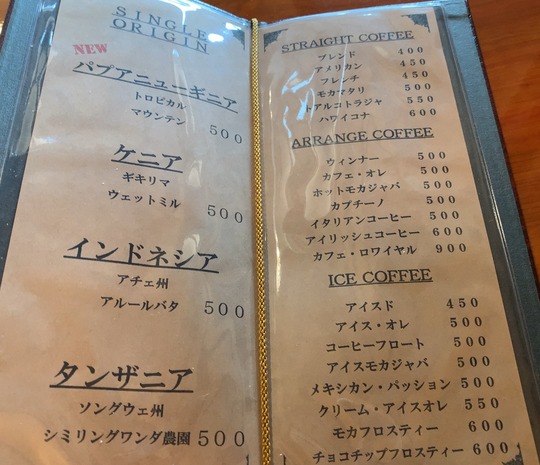 SINGLE
ORIGIN
NEW
パプアニューギニア
トロピカル
マウンテン 500
ケニア
ギキリマ
ウェットミル 500
インドネシア
アチェ州
アルールバタ 500
タンザニア
ソングウェ州
シミリングワンダ農園 500
STRAIGHT COFFEE
ブレンド 400
アメリカン 450
フレンチ 450
モカマタリ 500
トアルコトラジャ 550
ハワイコナ 600
ARRANGE COFFEE
ウィンナー 500
カフェ・オレ 500
ホットモカジャバ 500
カプチーノ 500
イタリアンコーヒー 500
アイリッシュコーヒー 600
カフェ・ロワイヤル 900
ICE COFFEE
アイスド 450
アイス・オレ 500
コーヒーフロート 500
アイスモカジャバ 500
メキシカン・パッション 500
クリーム・アイスオレ 550
モカフロスティー 600
チョコチップフロスティー 600